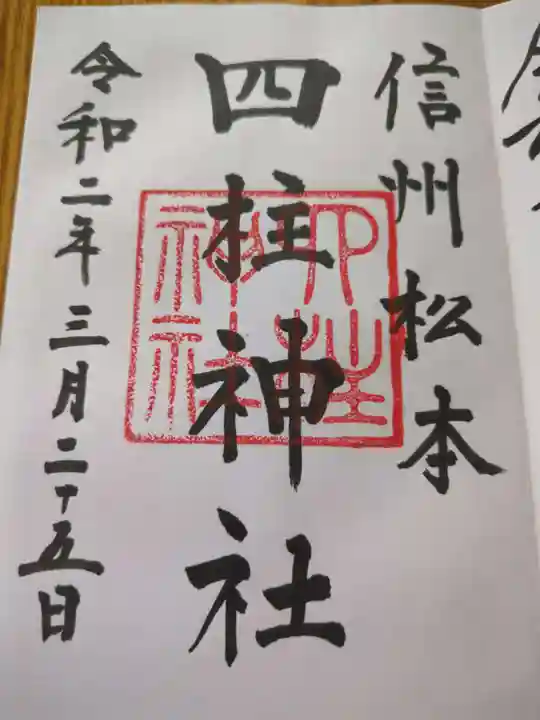 信州松本
四柱神社
四柱神社
令和二年三月二十五日